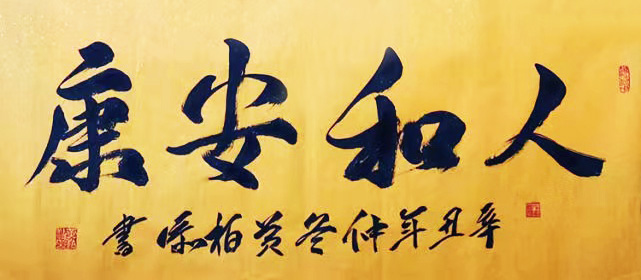 人和安康
辛丑年仲冬黄柏添書